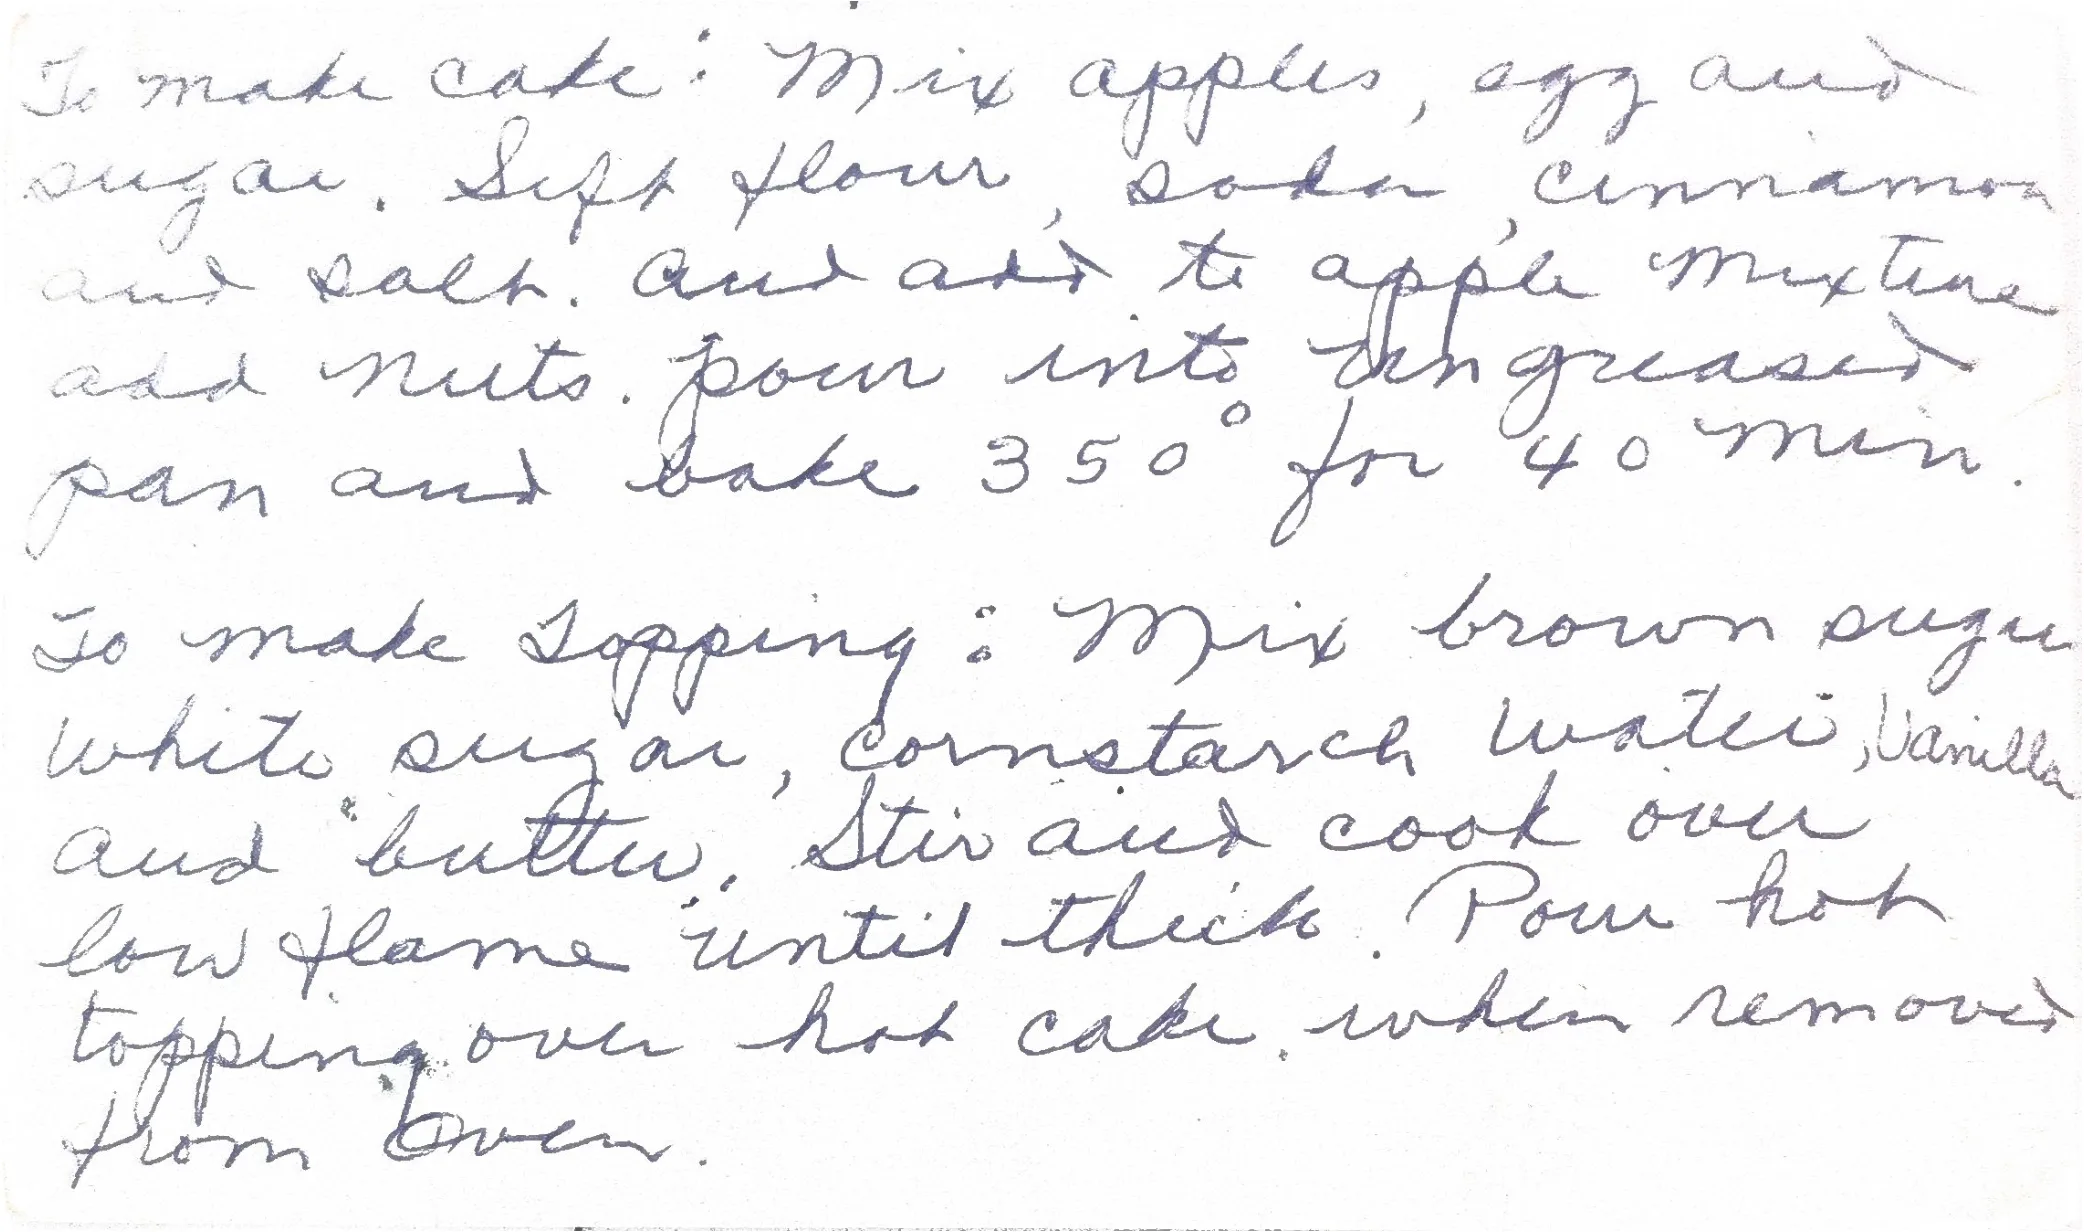 To make cake: Mix apples, egg and
sugar. Sift flour, soda, cinnamon
and salt. and add to apple mixture
add nuts. pour into ungreased
pan and bake 350° for 40 min.
To make topping: Mix brown sugar
white sugar, cornstarch water, Vanilla
and butter. Stir and cook over
low flame until thick. Pour hot
topping over hot cake when removed
from oven.